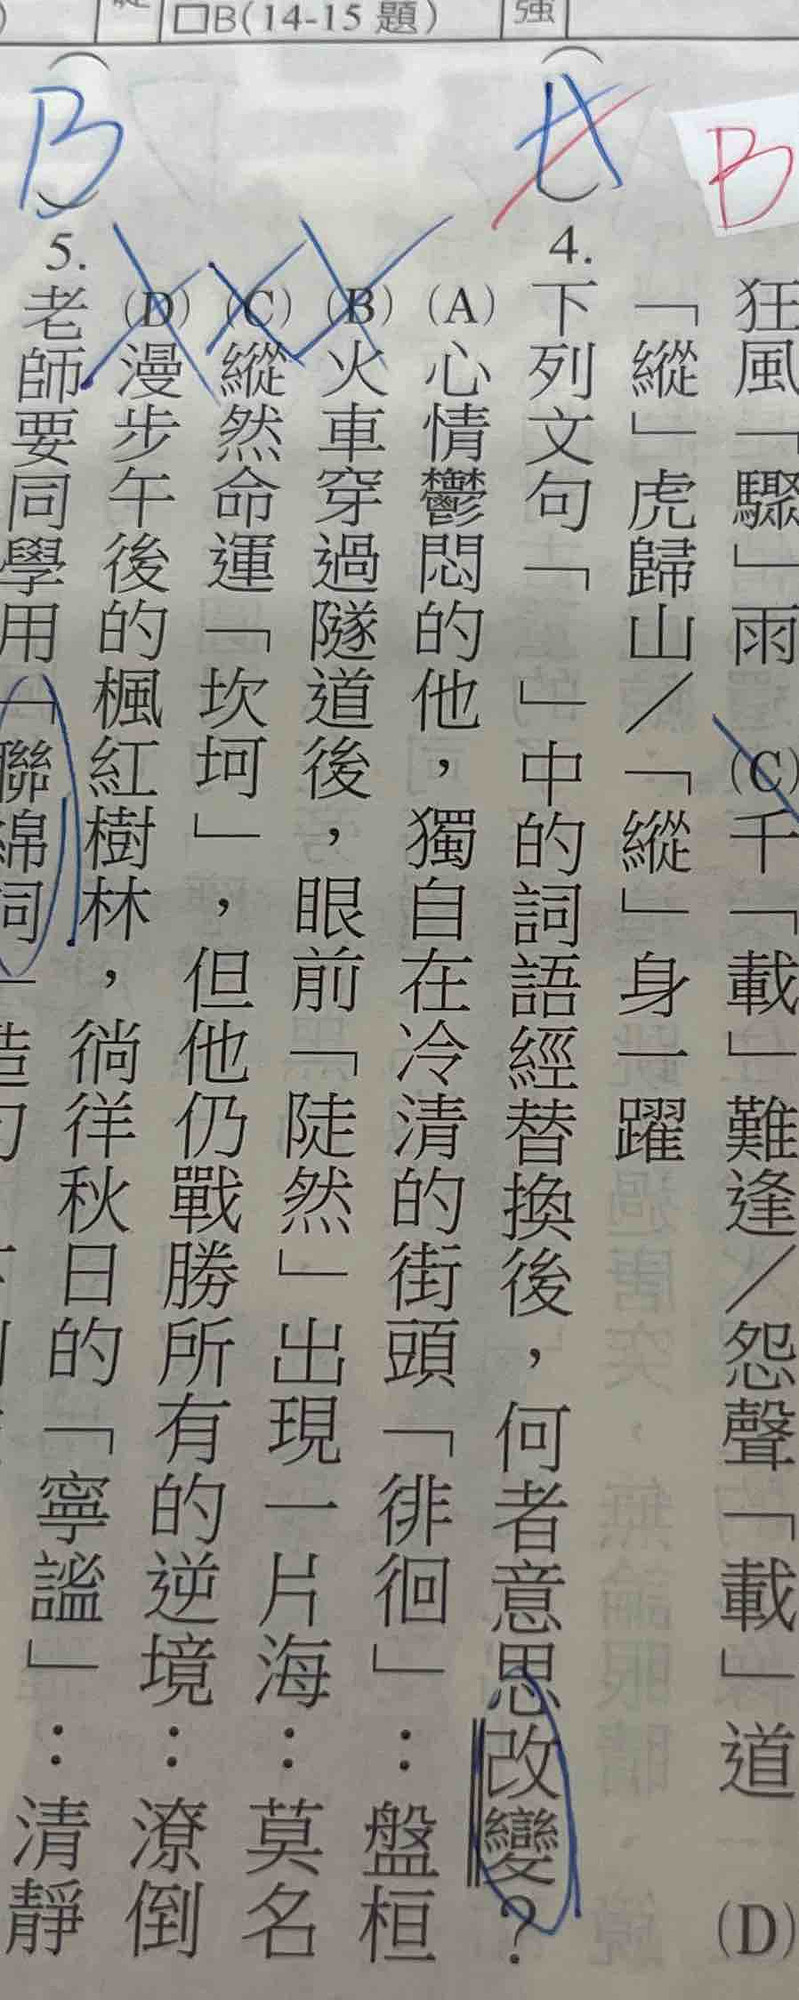 B(14-15題)
強
B
狂風「驟」雨 (C)千「載」難逢／怨聲「載」道 (D)
「縱」虎歸山／「縱」身一躍
(A) 4. 下列文句「 」中的詞語經替換後，何者意思改變？
(A)心情鬱悶的他，獨自在冷清的街頭「徘徊」：盤桓
(B)火車穿過隧道後，眼前「陡然」出現一片海：莫名
(C)縱然命運「坎坷」，但他仍戰勝所有的逆境：潦倒
(D)漫步午後的楓紅樹林，徜徉秋日的「寧謐」：清靜
(B) 5. 老師要同學用「聯綿詞」造句